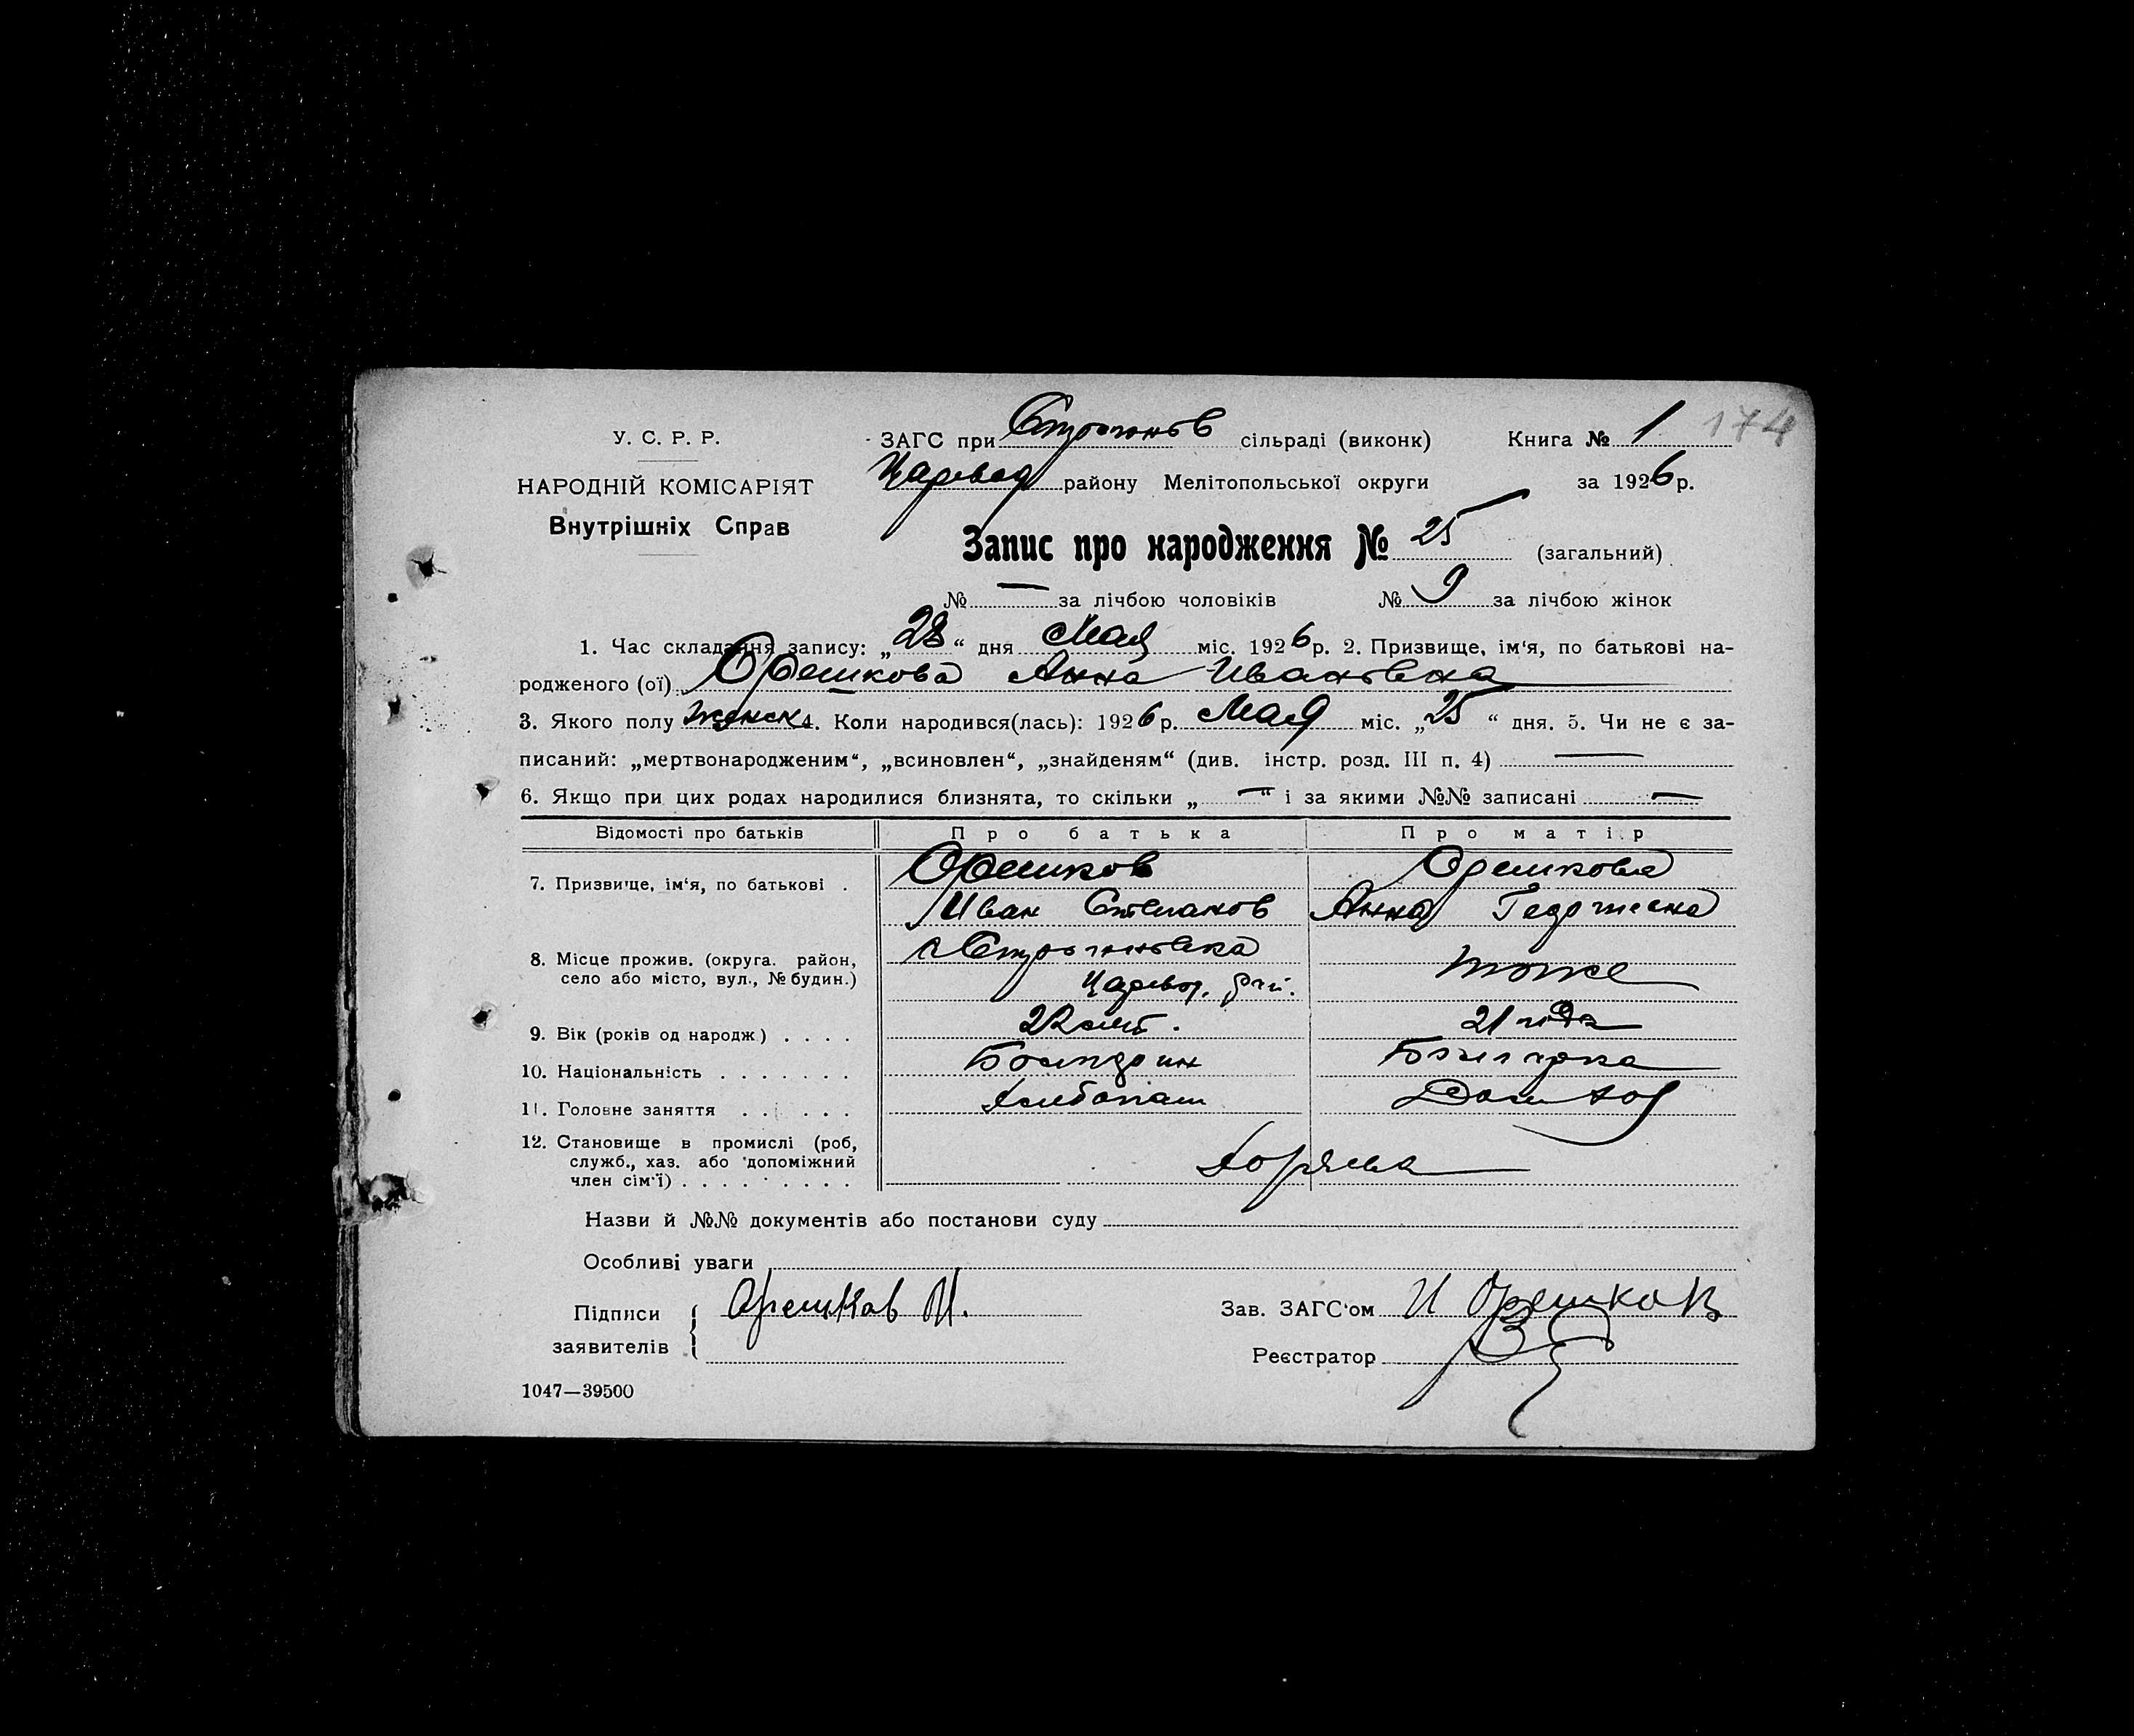 174
У. С. Р. Р.
НАРОДНІЙ КОМІСАРІЯТ
Внутрішніх Справ
ЗАГС при Строганов сільраді (виконк) Книга № 1
Царевод району Мелітопольської округи за 1926 р.
Запис про народження № 25 (загальний)
№ — за лічбою чоловіків № 9 за лічбою жінок
1. Час складання запису: „28“ дня Мая міс. 1926 р. 2. Призвище, ім‘я, по батькові на-
родженого (ої) Орешкова Анна Ивановна
3. Якого полу женск 4. Коли народився(лась): 1926 р. Мая міс. „25“ дня. 5. Чи не є за-
писаний: „мертвонародженим“, „всиновлен“, „знайденям“ (див. інстр. розд. III п. 4) —
6. Якщо при цих родах народилися близнята, то скільки „—“ і за якими №№ записані —
Відомості про батьків Про батька Про матір
7. Призвище, ім‘я, по батькові . Орешков Орешкова
Иван Степанов Анна
8. Місце прожив. (округа. район,
село або місто, вул., № будин.)
с Строгановка тоже
Царевод. рай.
9. Вік (років од народж) . . . . 22 лет. 21 года
10. Національність . . . . . . . Болгарин Болгарка
11. Головне заняття . . . . . Хлебопаш Дом хоз
12. Становище в промислі (роб,
служб., хаз. або допоміжний
член сім‘ї) . . . . . . . . .
Хозяева
Назви й №№ документів або постанови суду
Особливі уваги
Підписи заявителів { Орешков И.
Зав. ЗАГС‘ом И Орешков
Реєстратор
1047—39500